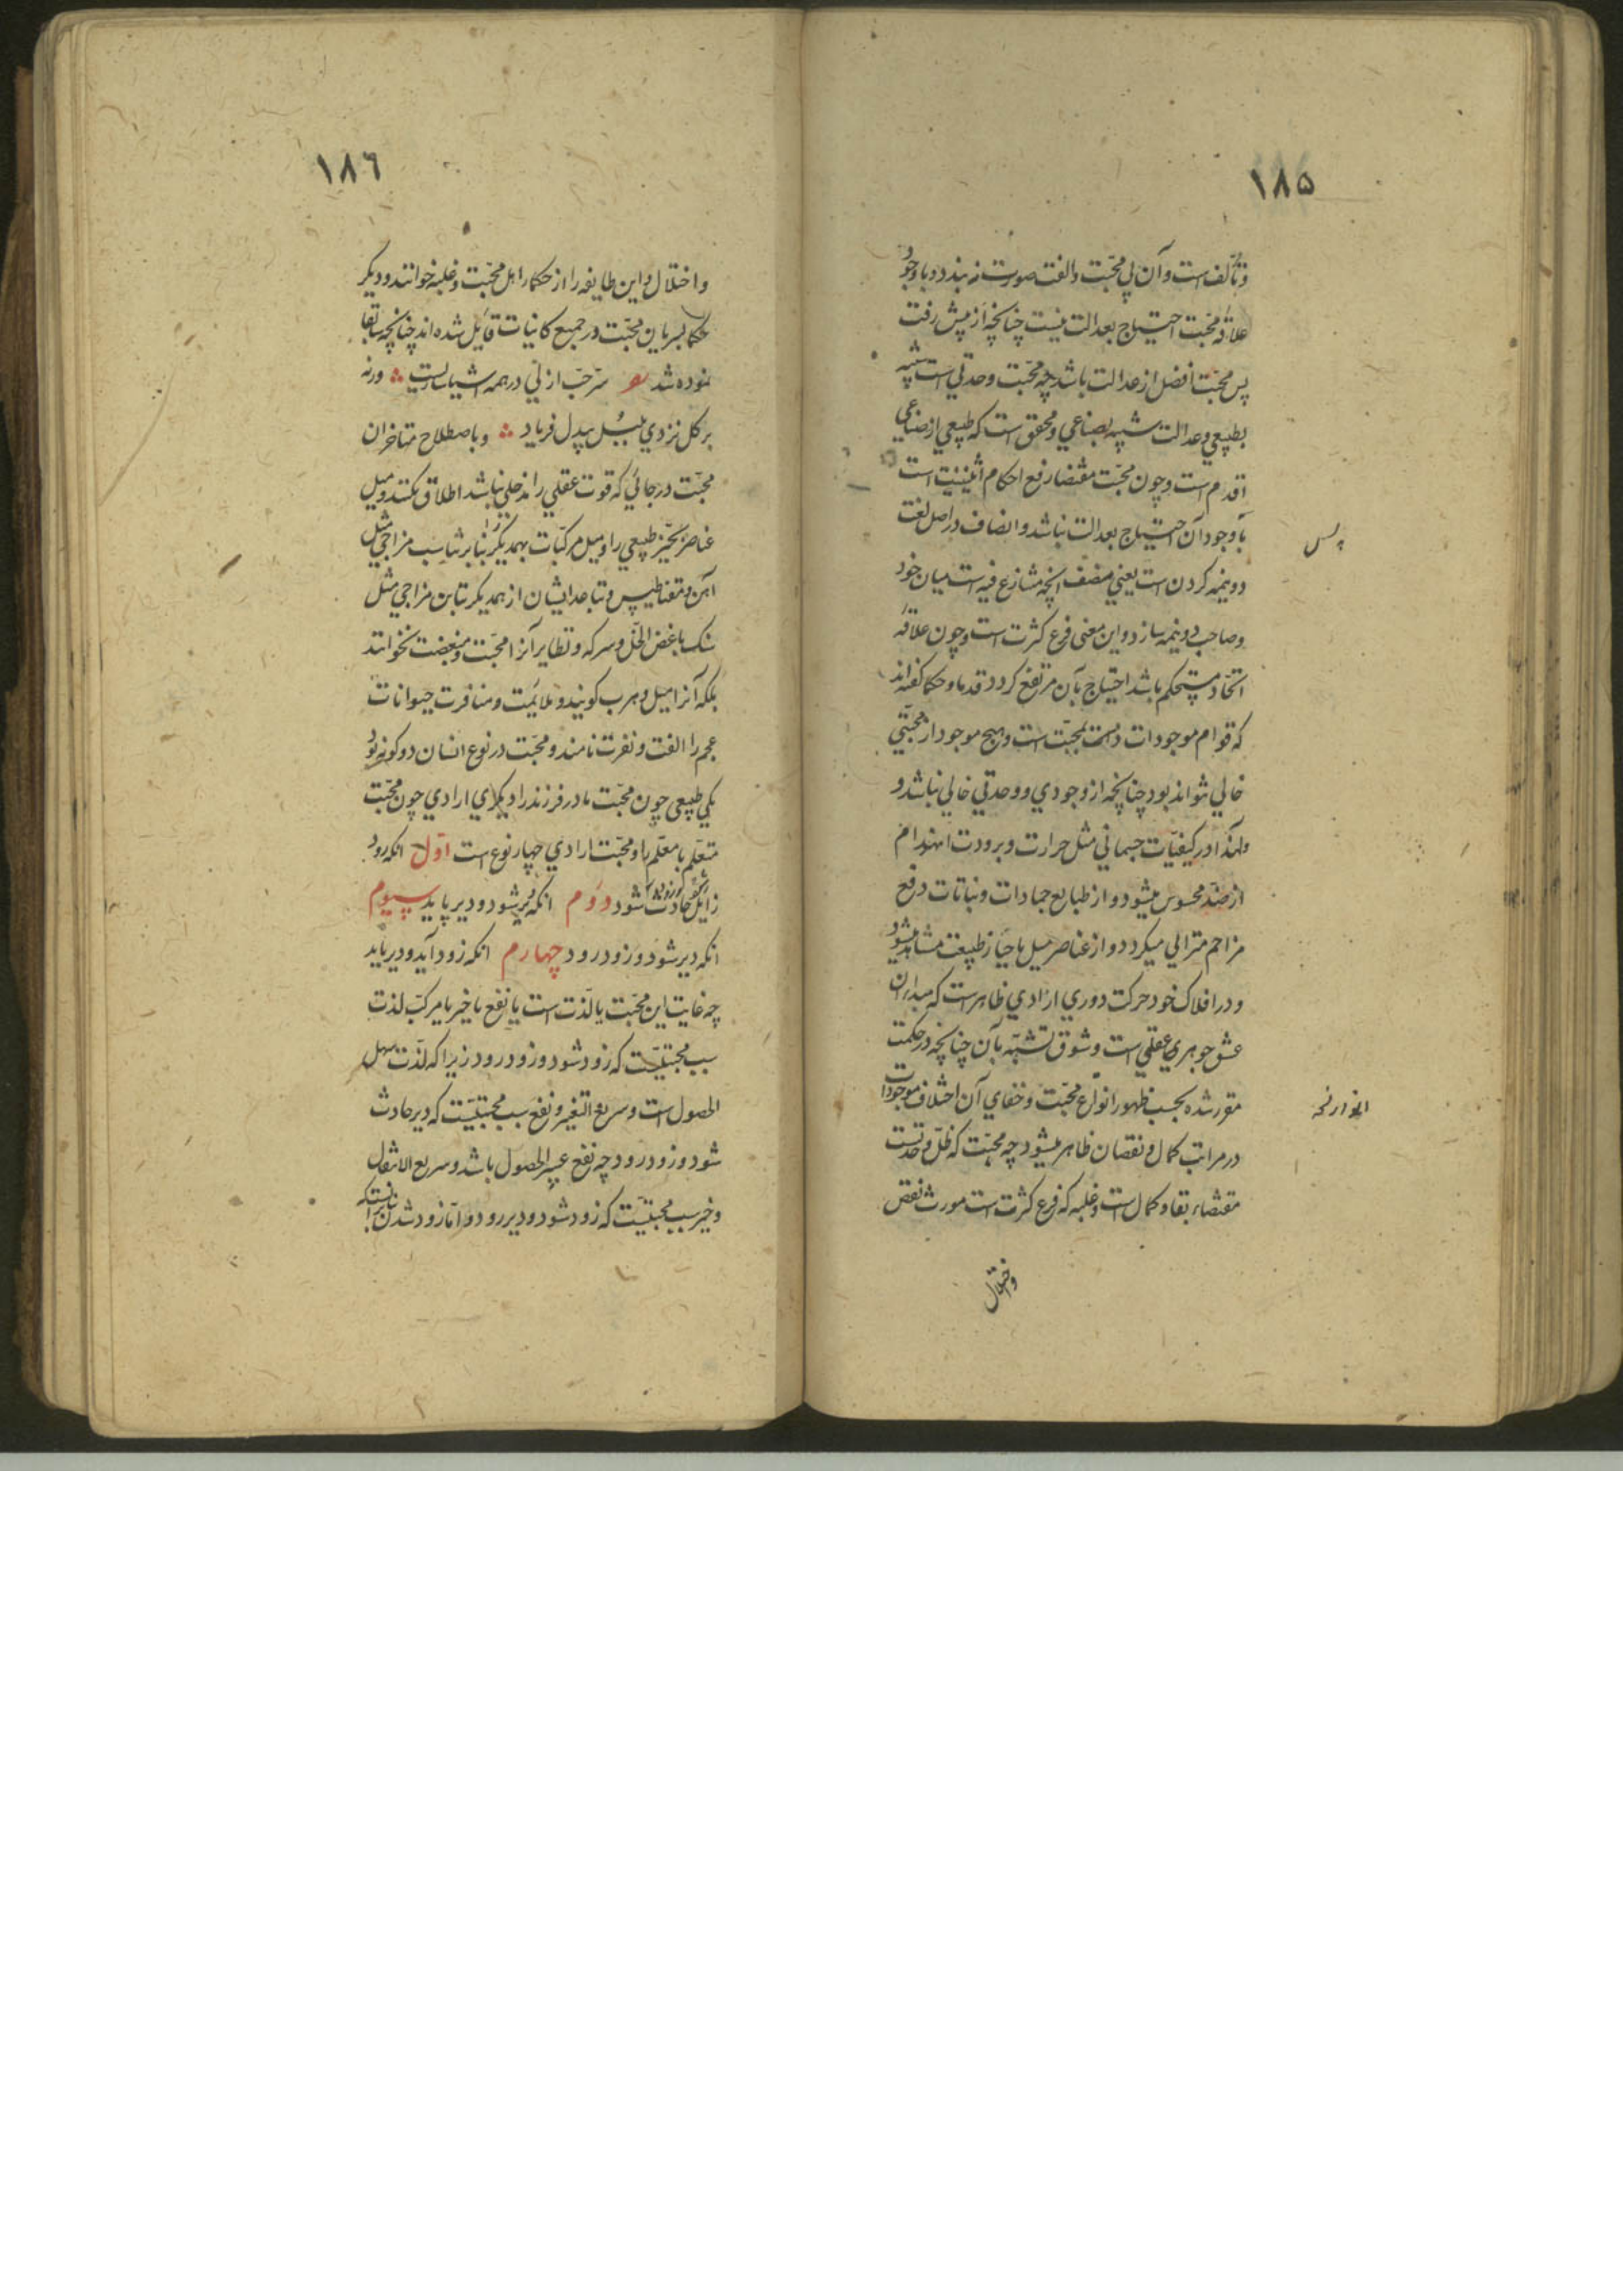 ۱۸۵
و تألف است و آن بی محبت و الفت صورت نه بندد و با وجود
علاقهٔ محبت احتیاج بعدالت نیست چنانچه از پیش رفت
پس محبت افضل از عدالت باشد چه محبت وحدتی است شبیه
بطبیعی و عدالت شبیه بصناعی و محقق است که طبیعی از صناعی
اقدم است و چون محبت مقتضا رفع احکام اثنینیت است
با وجود آن احتیاج بعدالت نباشد و انصاف در اصل لغت
دو نیمه کردن است یعنی منصف آنچه متنازع فیه است میان خود
و صاحب دو نیمه سازد و این معنی فرع کثرت است و چون علاقهٔ
اتحاد مستحکم باشد احتیاج بآن مرتفع کردد قدماء حکما کفته اند
که قوام موجودات بمحبت است و هیچ موجود از محبتی
خالی نتواند بود چنانچه از وجودی و وحدتی خالی نباشد و
ولهذا در کیفیات جسمانی مثل حرارت و برودت انهزام
از ضد محسوس میشود و از طبایع جمادات و نباتات دفع
مزاحم مترائی میکردد و از عناصر میل باحیاز طبیعت مشاهد میشود
و در افلاک خود حرکت دوری ارادی ظاهر است که مبداء آن
عشق جوهری عقلی است و شوق تشبه بآن چنانچه در حکمت
مقرر شده بحسب ظهور انواع محبت و خفای آن اختلاف موجودات
در مراتب کمال و نقصان ظاهر میشود چه محبت که ظل وحدتست
مقتضاء بقا و کمال است و غلبه که فرع کثرت است مورث نقص
و اختلال
۱۸٦
و اختلال و این طایفه را از حکما اهل محبت و غلبه خوانند و دیکر
حکما بسریان محبت در جمیع کاینات قایل شده اند چنانچه سابقا
نموده شد سر حب ازلی در همه اشیا ساریست ورنه
بر کل نزدی بلبل بیدل فریاد و باصطلاح متاخران
محبت در جائی که قوت عقلی را مدخلی نباشد اطلاق نکنند و میل
عناصر بحیز طبیعی را و میل مرکبات بهمدیکر بنابر تناسب مزاجی مثل
آهن و مقناطیس و تباعد ایشان از همدیکر تباین مزاجی مثل
سنک باغض الخل و سرکه و نظایر آنرا محبت و مبغضت نخوانند
بلکه آنرا میل و هرب کویند و ملایمت و منافرت حیوانات
عجم را الفت و نفرت نامند و محبت در نوع انسان دو کونه بود
یکی طبیعی چون محبت مادر فرزند را دیکری ارادی چون محبت
متعلم با معلم را و محبت ارادی چهار نوع است اول آنکه زود
زایل حادث شود دوم آنکه دیر شود و دیر پاید سیوم
آنکه دیر شود و زود رود چهارم آنکه زود آید و دیر پاید
چه غایت این محبت یا لذت است یا نفع یا خیر یا مرکب لذت
سبب محبتیست که زود شود و زود رود زیرا که لذت سهل
الحصول است و سریع التغیر و نفع سبب محبتیست که دیر حادث
شود و زود رود چه نفع عسیر الحصول باشد و سریع الانتقال
و خیر سبب محبتیست که زود شود و دیر رود و اما زود شدن